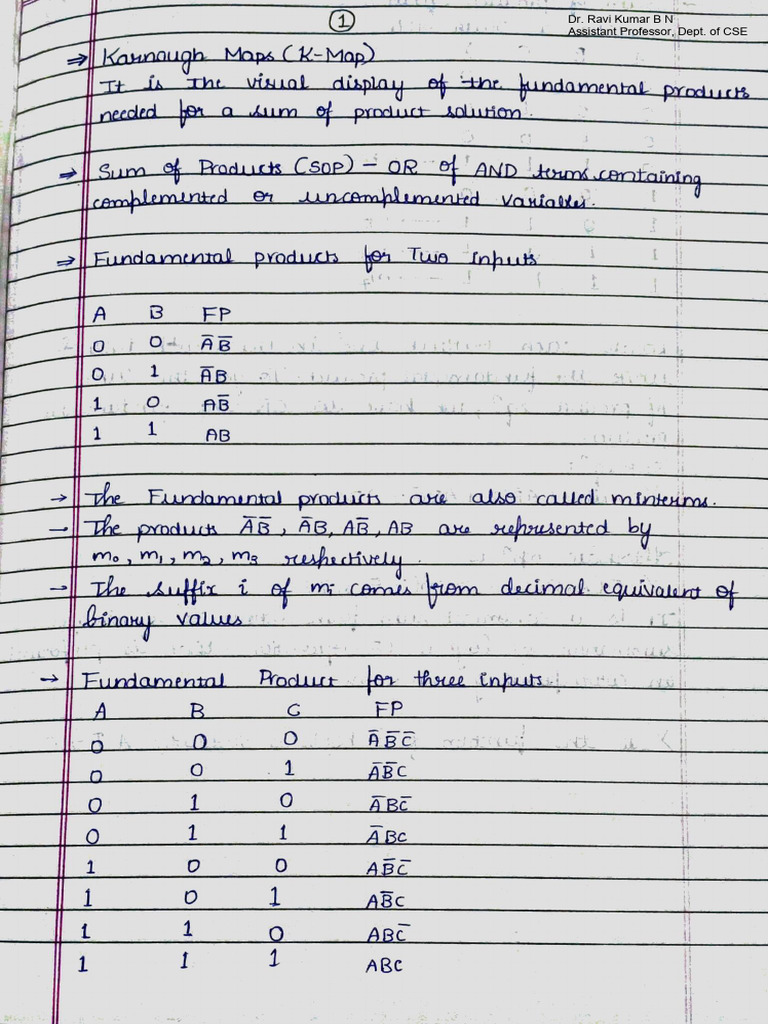 1
Dr. Ravi Kumar B N
Assistant Professor, Dept. of CSE
⇒ Karnough Maps (K-Map)
It is The visual display of the fundamental products
needed for a sum of product solution.
⇒ Sum of Products (SOP) – OR of AND terms containing
complemented or uncomplemented variables.
⇒ Fundamental products for Two inputs
A B FP
0 0 A̅B̅
0 1 A̅B
1 0 AB̅
1 1 AB
→ The Fundamental products are also called minterms.
→ The products A̅B̅, A̅B, AB̅, AB are represented by
m₀, m₁, m₂, m₃ respectively.
→ The suffix i of mᵢ comes from decimal equivalent of
binary values
→ Fundamental Product for three inputs
A B C FP
0 0 0 A̅B̅C̅
0 0 1 A̅B̅C
0 1 0 A̅BC̅
0 1 1 A̅BC
1 0 0 AB̅C̅
1 0 1 AB̅C
1 1 0 ABC̅
1 1 1 ABC